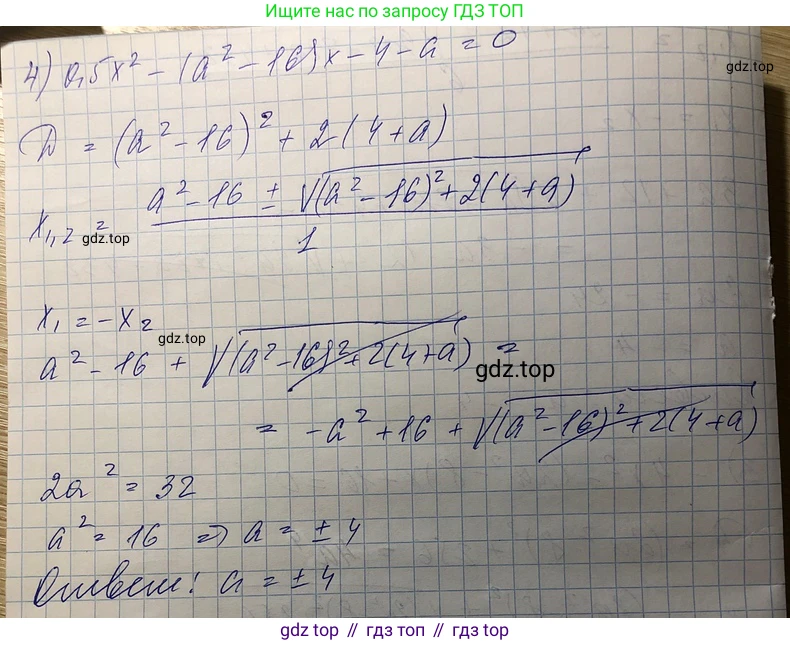 Ищите нас по запросу ГДЗ ТОП
4) 0,5x² - (a² - 16)x - 4 - a = 0
gdz.top
D = (a² - 16)² + 2(4 + a)
x₁,₂ = (a² - 16 ± √((a² - 16)² + 2(4 + a))) / 1
gdz.top
x₁ = -x₂
gdz.top
a² - 16 + √((a² - 16)² + 2(4 + a)) =
gdz.top
= -a² + 16 + √((a² - 16)² + 2(4 + a))
2a² = 32
a² = 16 => a = ± 4
Ответ: a = ± 4
gdz top // гдз топ // gdz top